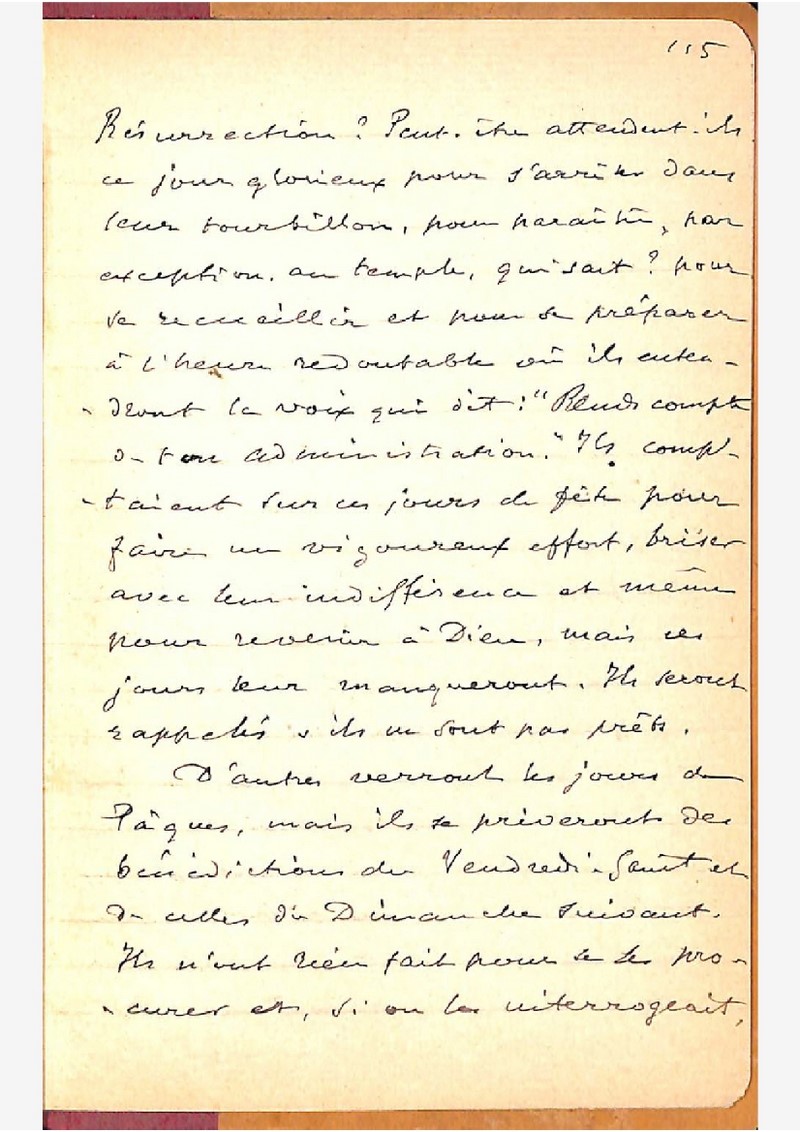 115
Résurrection ? Peut-être attendent-ils
ce jour glorieux pour s'arrêter dans
leur tourbillon, pour paraître, par
exception, au temple, qui sait ? pour
se recueillir et pour se préparer
à l'heure redoutable où ils enten-
-dront la voix qui dit : "Rends compte
de ton administration." Ils comp-
-taient sur ces jours de fête pour
faire un vigoureux effort, briser
avec leur indifférence et même
pour revenir à Dieu, mais ces
jours leur manqueront. Ils seront
rappelés s'ils ne sont pas prêts.
D'autres verront les jours de
Pâques, mais ils se priveront des
bénédictions du Vendredi-Saint et
de celles du Dimanche suivant.
Ils n'ont rien fait pour se les pro-
-curer et, si on les interrogeait,